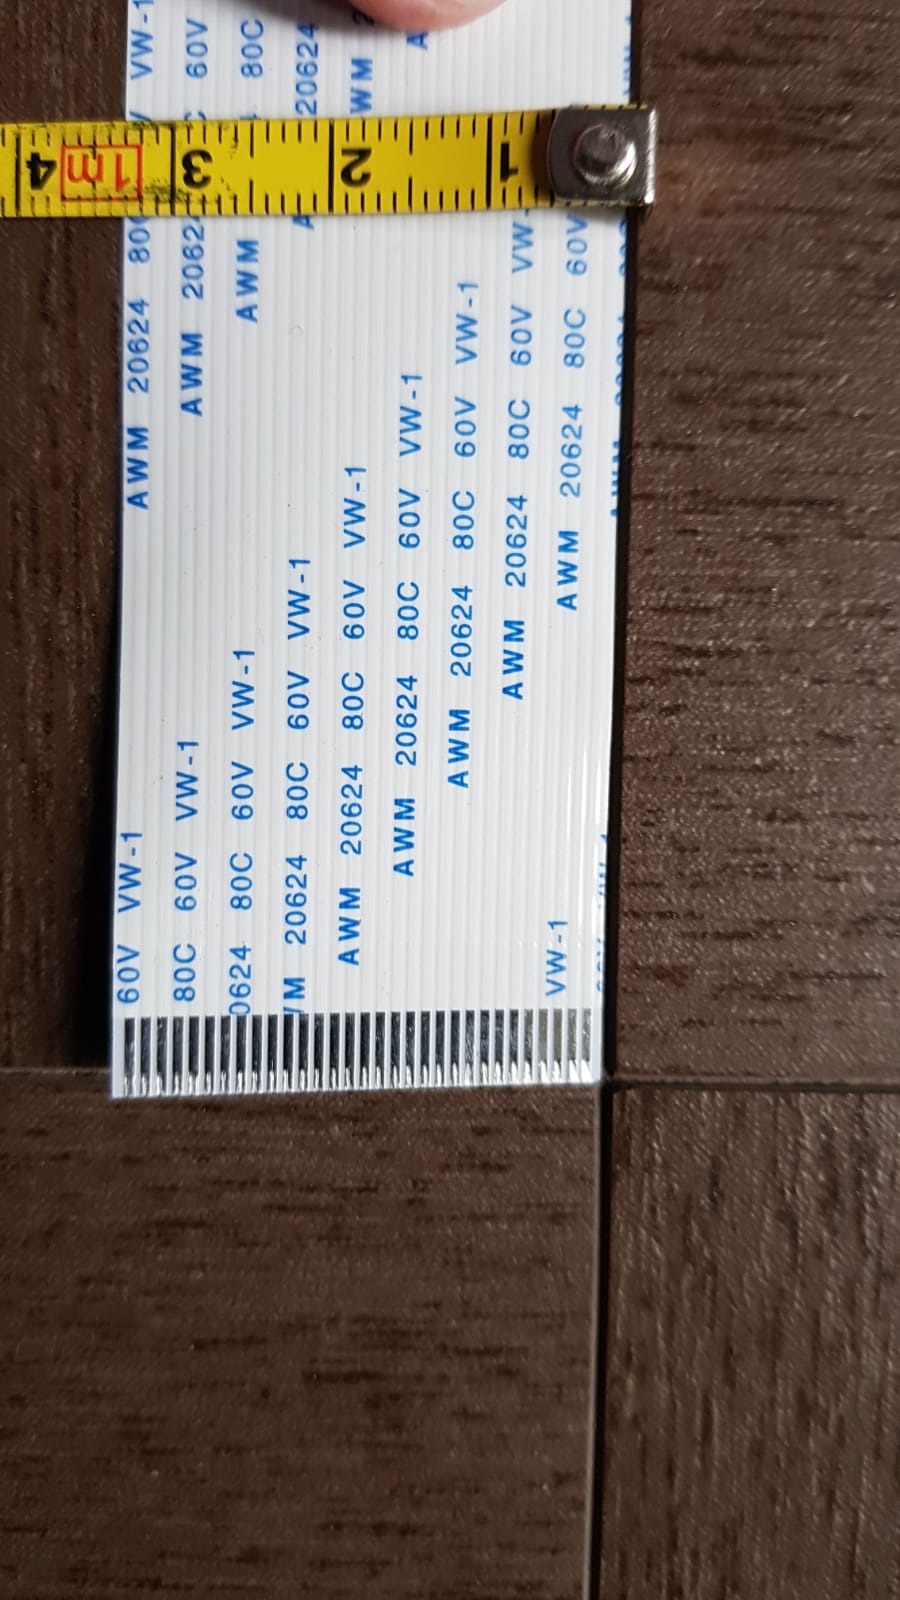 60V VW-1 AWM 20624 80C VW-1
80C 60V VW-1 AWM 2062 60V
0624 80C 60V VW-1 AWM 80C
20624 80C 60V VW-1 A 20624
AWM 20624 80C 60V VW-1 WM
AWM 20624 80C 60V VW-1 A
AWM 20624 80C 60V VW-1
AWM 20624 80C 60V VW-
VW-1 AWM 20624 80C 60V
1 2 3 1m 4